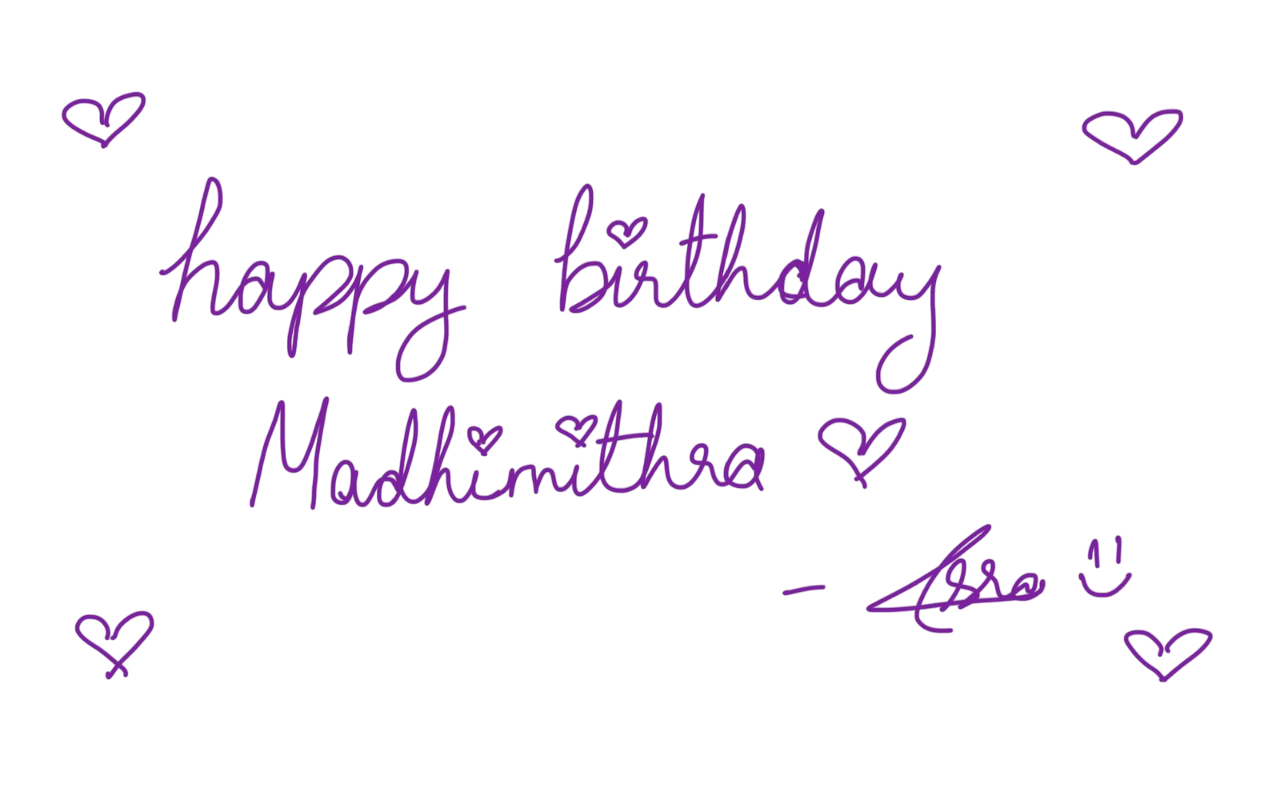 happy birthday
Madhimithra
-